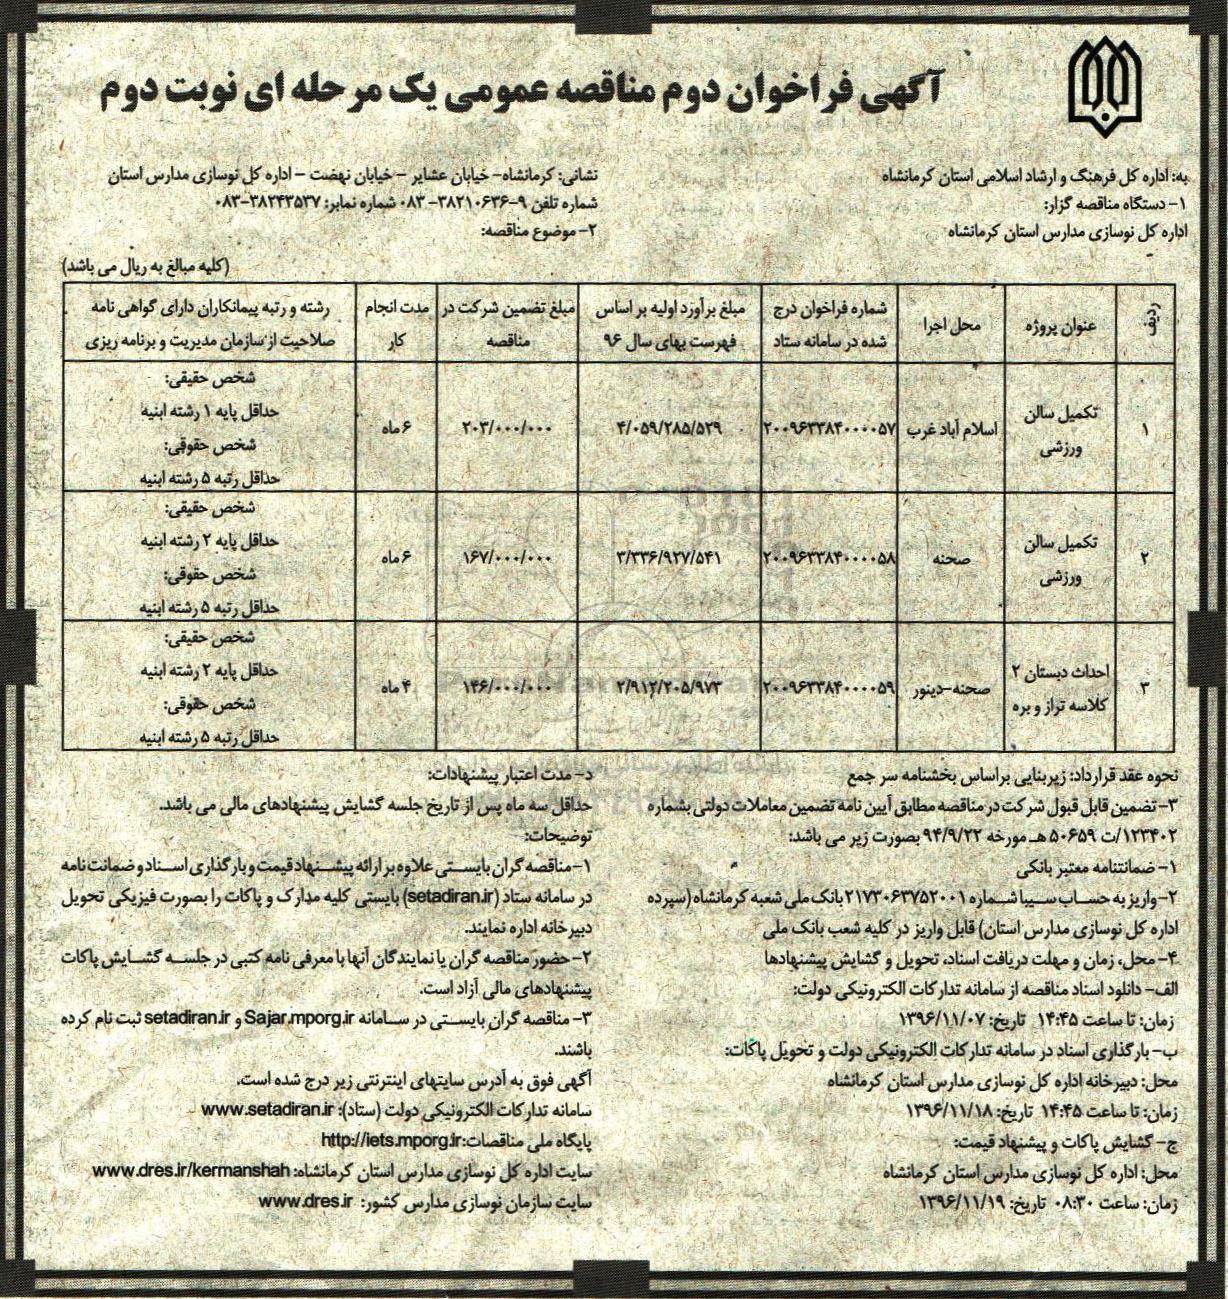 آگهی فراخوان دوم مناقصه عمومی یک مرحله ای نوبت دوم
به: اداره کل فرهنگ و ارشاد اسلامی استان کرمانشاه
۱- دستگاه مناقصه گزار:
اداره کل نوسازی مدارس استان کرمانشاه
نشانی: کرمانشاه- خیابان عشایر – خیابان نهضت – اداره کل نوسازی مدارس استان
شماره تلفن ۹-۳۸۲۱۰۶۳۶- ۰۸۳ شماره نمابر: ۳۸۲۴۳۵۳۷-۰۸۳
۲- موضوع مناقصه:
(کلیه مبالغ به ریال می باشد)
ردیف
عنوان پروژه
محل اجرا
شماره فراخوان درج
شده در سامانه ستاد
مبلغ برآورد اولیه بر اساس
فهرست بهای سال ۹۶
مبلغ تضمین شرکت در
مناقصه
مدت انجام
کار
رشته و رتبه پیمانکاران دارای گواهی نامه
صلاحیت از سازمان مدیریت و برنامه ریزی
۱
تکمیل سالن
ورزشی
اسلام آباد غرب
۲۰۰۹۶۳۳۸۴۰۰۰۰۵۷
۴/۰۵۹/۲۸۵/۵۲۹
۲۰۳/۰۰۰/۰۰۰
۶ ماه
شخص حقیقی:
حداقل پایه ۱ رشته ابنیه
شخص حقوقی:
حداقل رتبه ۵ رشته ابنیه
۲
تکمیل سالن
ورزشی
صحنه
۲۰۰۹۶۳۳۸۴۰۰۰۰۵۸
۳/۳۳۶/۹۲۷/۵۴۱
۱۶۷/۰۰۰/۰۰۰
۶ ماه
شخص حقیقی:
حداقل پایه ۲ رشته ابنیه
شخص حقوقی:
حداقل رتبه ۵ رشته ابنیه
۳
احداث دبستان ۲
کلاسه تراز و بره
صحنه-دینور
۲۰۰۹۶۳۳۸۴۰۰۰۰۵۹
۲/۹۱۲/۲۰۵/۹۷۳
۱۴۶/۰۰۰/۰۰۰
۴ ماه
شخص حقیقی:
حداقل پایه ۲ رشته ابنیه
شخص حقوقی:
حداقل رتبه ۵ رشته ابنیه
نحوه عقد قرارداد: زیربنایی براساس بخشنامه سر جمع
۳- تضمین قابل قبول شرکت در مناقصه مطابق آیین نامه تضمین معاملات دولتی بشماره
۱۲۳۴۰۲/ت ۵۰۶۵۹ هـ مورخه ۹۴/۹/۲۲ بصورت زیر می باشد:
۱- ضمانتنامه معتبر بانکی
۲- واریز به حساب سیبا شماره ۲۱۷۳۰۶۳۷۵۲۰۰۱ بانک ملی شعبه کرمانشاه (سپرده
اداره کل نوسازی مدارس استان) قابل واریز در کلیه شعب بانک ملی
۴- محل، زمان و مهلت دریافت اسناد، تحویل و گشایش پیشنهادها
الف- دانلود اسناد مناقصه از سامانه تدارکات الکترونیکی دولت:
زمان: تا ساعت ۱۴:۴۵ تاریخ: ۱۳۹۶/۱۱/۰۷
ب- بارگذاری اسناد در سامانه تدارکات الکترونیکی دولت و تحویل پاکات:
محل: دبیرخانه اداره کل نوسازی مدارس استان کرمانشاه
زمان: تا ساعت ۱۴:۴۵ تاریخ: ۱۳۹۶/۱۱/۱۸
ج- گشایش پاکات و پیشنهاد قیمت:
محل: اداره کل نوسازی مدارس استان کرمانشاه
زمان: ساعت ۰۸:۳۰ تاریخ: ۱۳۹۶/۱۱/۱۹
د- مدت اعتبار پیشنهادات:
حداقل سه ماه پس از تاریخ جلسه گشایش پیشنهادهای مالی می باشد.
توضیحات:
۱- مناقصه گران بایستی علاوه بر ارائه پیشنهاد قیمت و بارگذاری اسناد و ضمانت نامه
در سامانه ستاد (setadiran.ir) بایستی کلیه مدارک و پاکات را بصورت فیزیکی تحویل
دبیرخانه اداره نمایند.
۲- حضور مناقصه گران یا نمایندگان آنها با معرفی نامه کتبی در جلسه گشایش پاکات
پیشنهادهای مالی آزاد است.
۳- مناقصه گران بایستی در سامانه Sajar.mporg.ir و setadiran.ir ثبت نام کرده
باشند.
آگهی فوق به آدرس سایتهای اینترنتی زیر درج شده است.
سامانه تدارکات الکترونیکی دولت (ستاد): www.setadiran.ir
پایگاه ملی مناقصات: http://iets.mporg.ir
سایت اداره کل نوسازی مدارس استان کرمانشاه: www.dres.ir/kermanshah
سایت سازمان نوسازی مدارس کشور: www.dres.ir